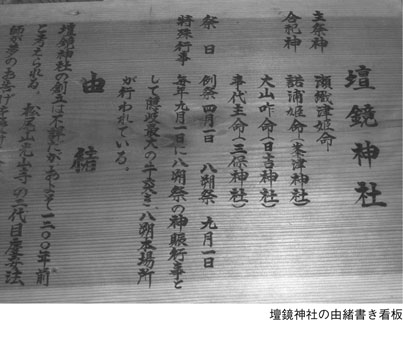 壇鏡神社
主祭神 瀬織津姫命
合祀神 諾浦姫命(米津神社)
大山咋命(日吉神社)
事代主命(三保神社)
祭日 例祭四月一日 八朔祭 九月一日
特殊行事 毎年九月一日、八朔祭の神賑行事と
して隠岐最大の牛突き、八朔本場所
が行われている。
由緒
壇鏡神社の創立は不詳だがおよそ一三〇〇年前
と考えられる。 光山寺の二代目慶安法
師が夢のお告げ
壇鏡神社の由緒書き看板